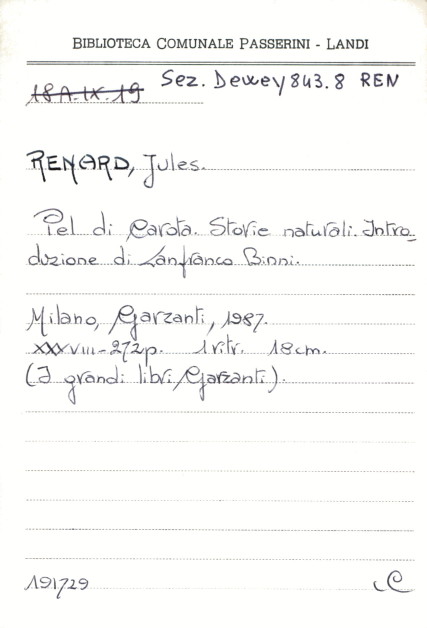 BIBLIOTECA COMUNALE PASSERINI - LANDI
18A.IX.19 Sez. Dewey 843.8 REN
RENARD, Jules.
Pel di Carota. Storie naturali. Intro-
duzione di Lanfranco Binni.
Milano, Garzanti, 1987.
XXXVIII-272p. 1 ritr. 18cm.
(I grandi libri Garzanti).
191729 C